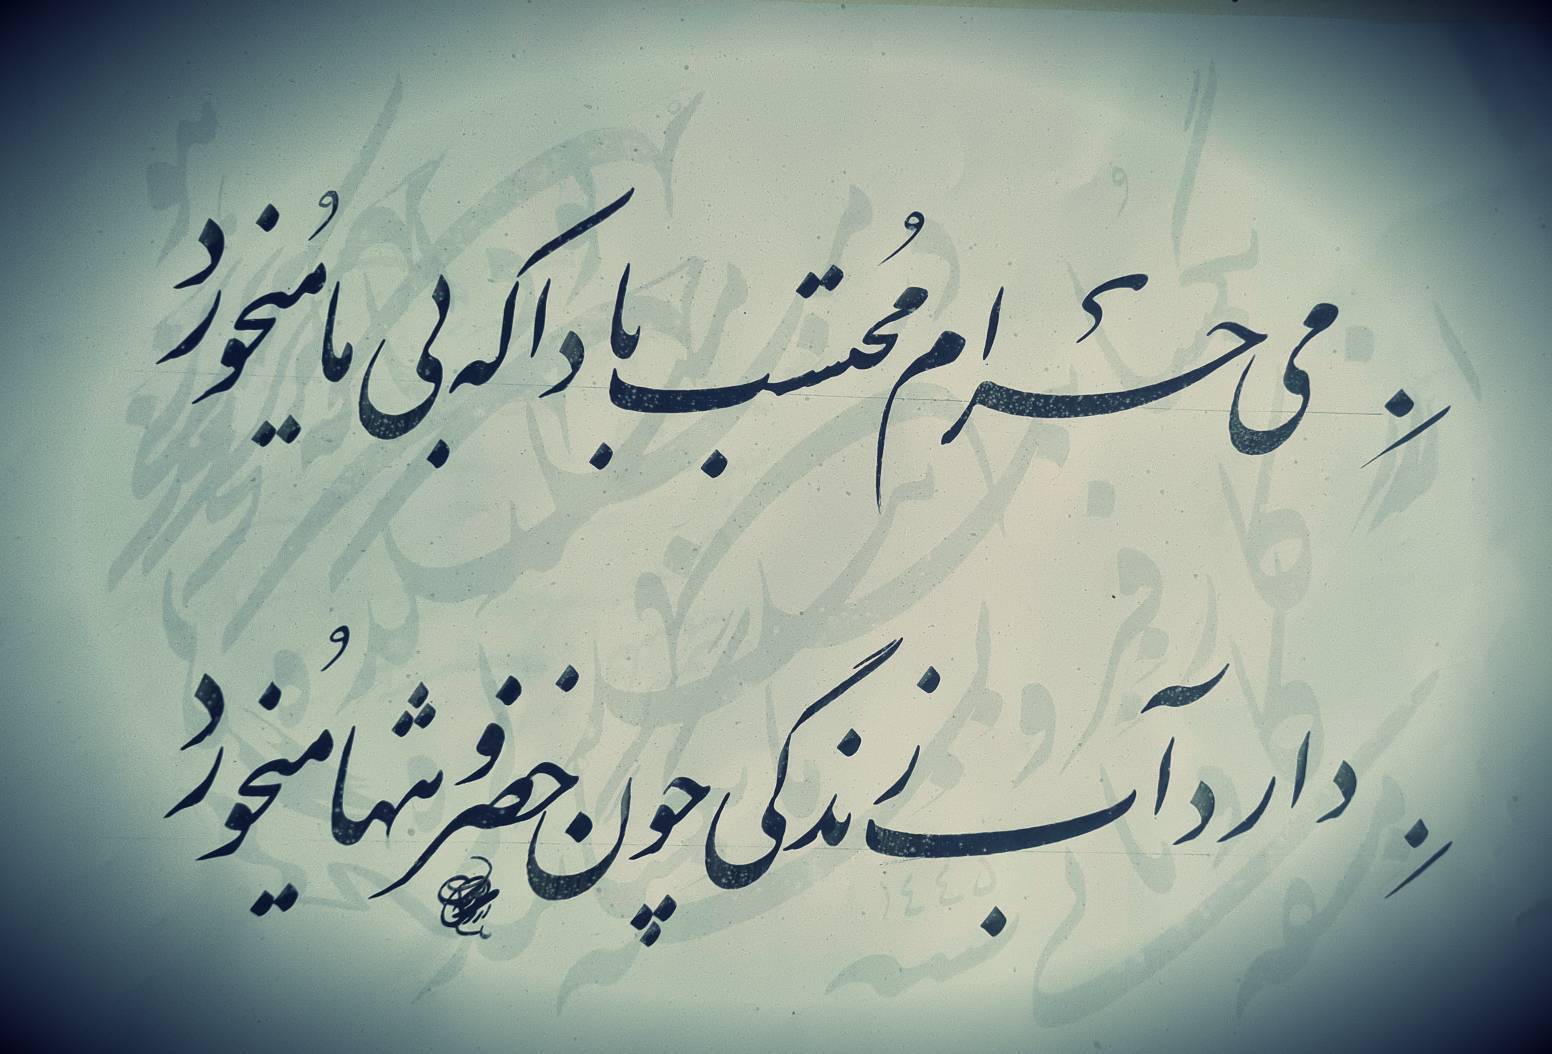 می حرام محتسب بادا که بی ما میخورد
دارد آب زندگی چون خضر و تنها میخورد